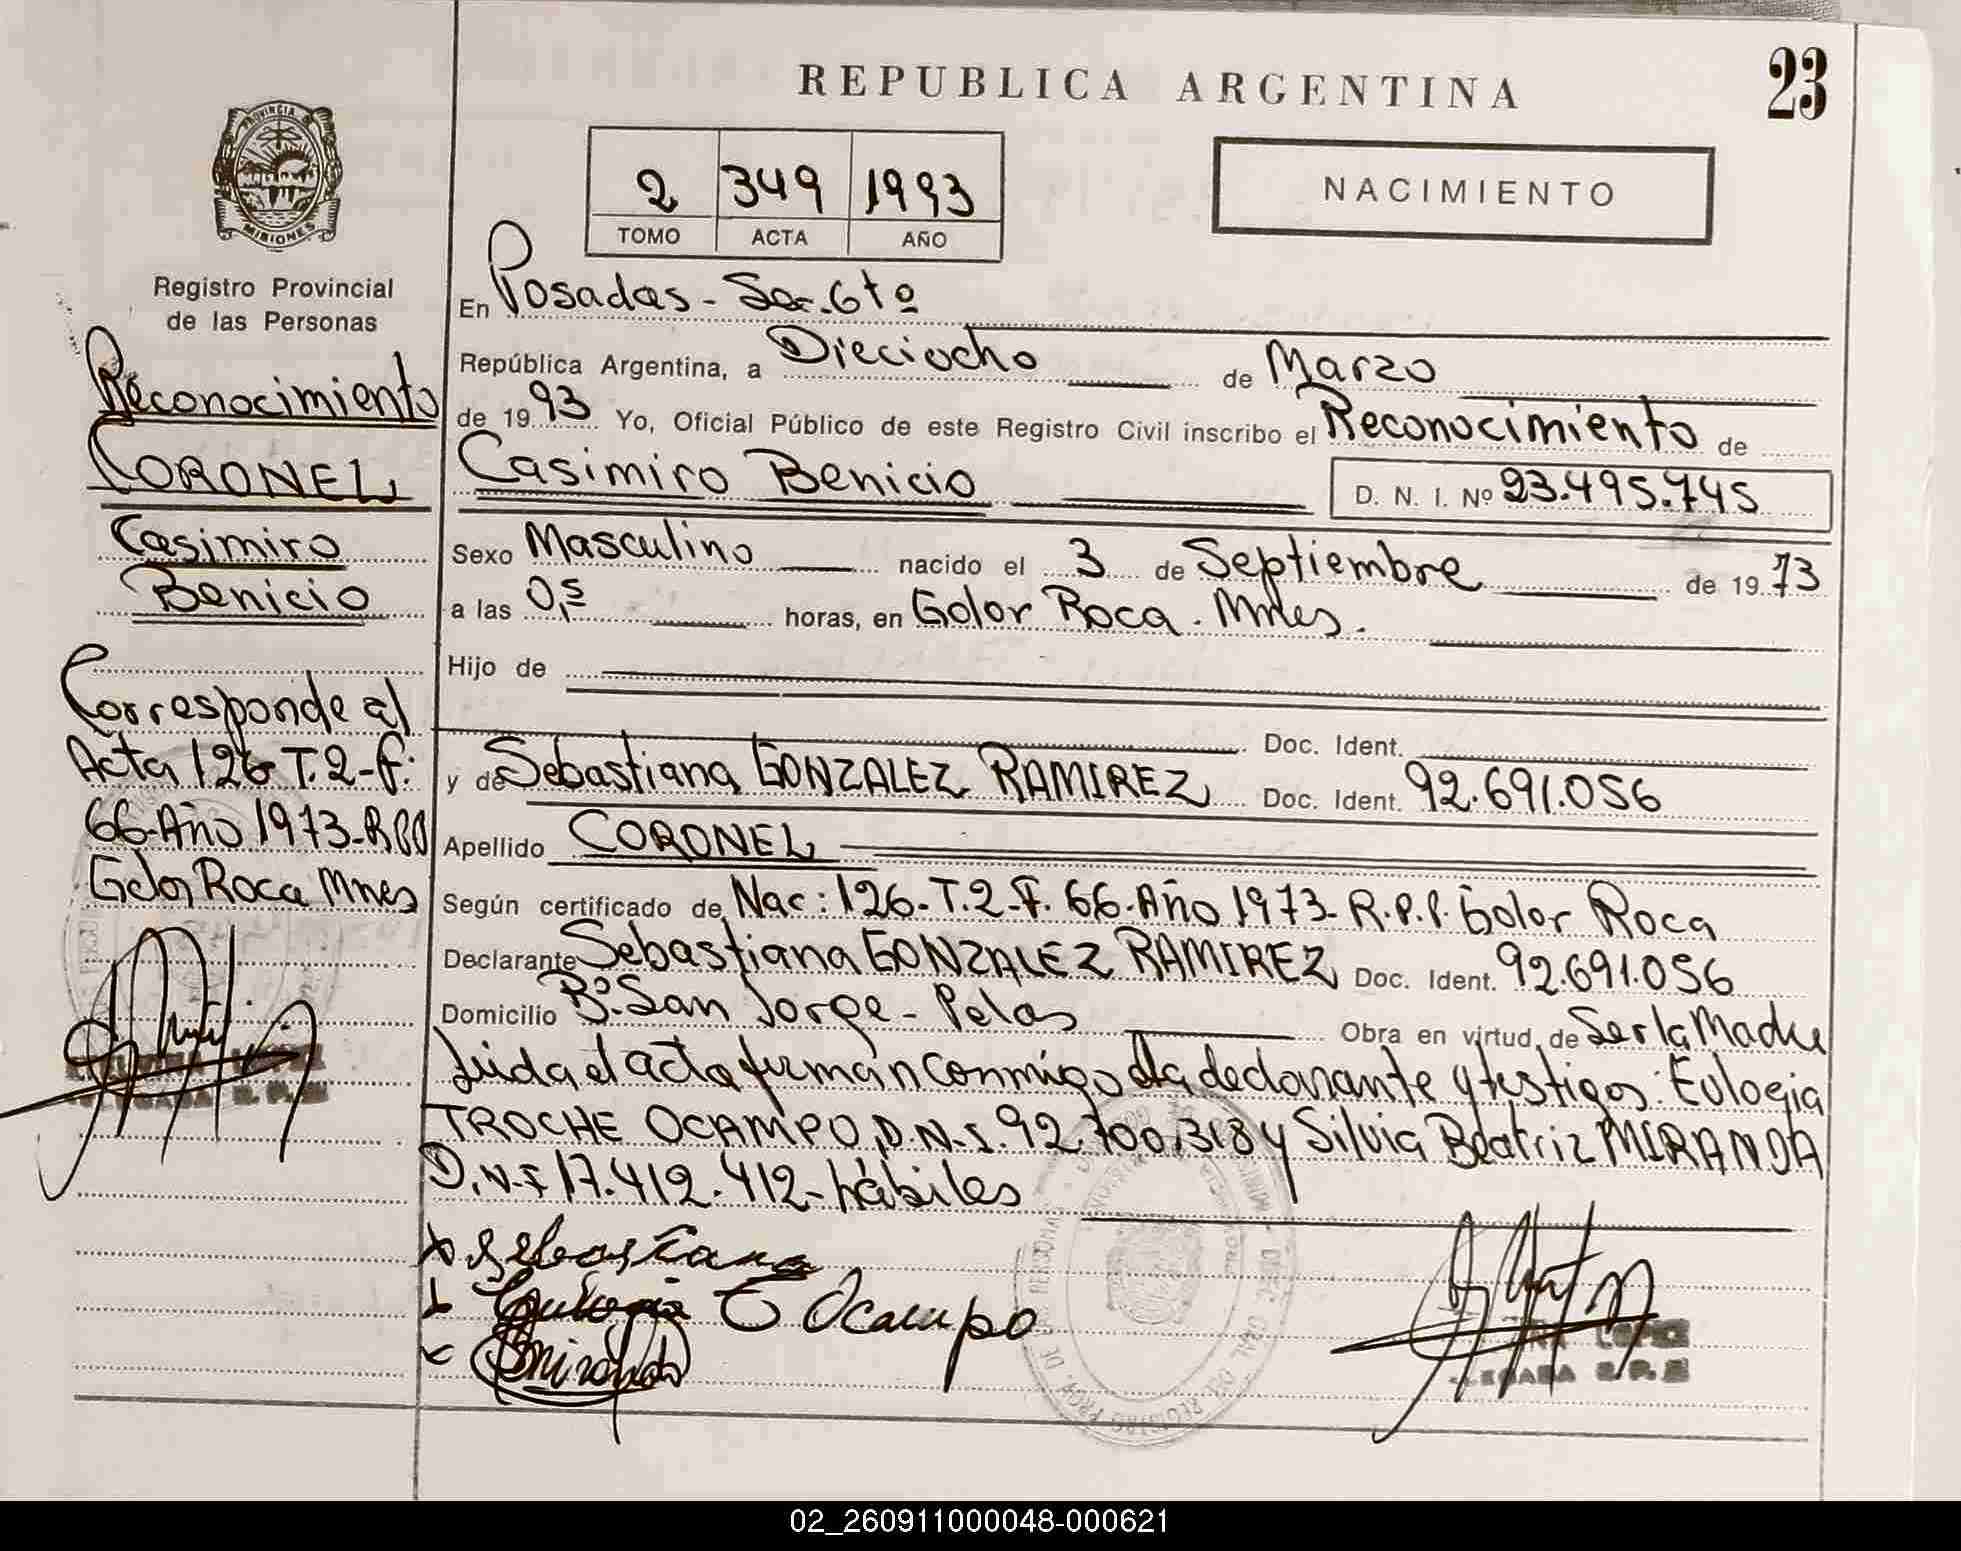 REPUBLICA ARGENTINA
23
PROVINCIA D
MISIONES
Registro Provincial
de las Personas
2 349 1993
TOMO ACTA AÑO
NACIMIENTO
Reconocimiento
CORONEL
Casimiro
Benicio
Corresponde al
Acta 126 T.2-f:
66-Año 1973-RPP
Gdor Roca Mnes
En Posadas - Sec. 6tº
República Argentina, a Dieciocho de Marzo
de 1993 Yo, Oficial Público de este Registro Civil inscribo el Reconocimiento de
Casimiro Benicio D. N. I. Nº 23.495.745
Sexo Masculino nacido el 3 de Septiembre de 1973
a las 0,5 horas, en Golor Roca. Mnes.
Hijo de
Doc. Ident.
y de Sebastiana GONZALEZ RAMIREZ Doc. Ident. 92.691.056
Apellido CORONEL
Según certificado de Nac: 126-T.2-F. 66-Año 1973-R.P.P. Golor Roca
Declarante Sebastiana GONZALEZ RAMIREZ Doc. Ident. 92.691.056
Domicilio Bº San Jorge - Pdas Obra en virtud de Ser la Madre
Leida el acta firman conmigo la declarante y testigos: Eulogia
TROCHE OCAMPO, D.N.I. 92.700.318 y Silvia Beatriz MIRANDA
D.N.I 17.412.412-hábiles
x Sebastiana
x Eulogia T Ocampo
x SMiranda
02_260911000048-000621